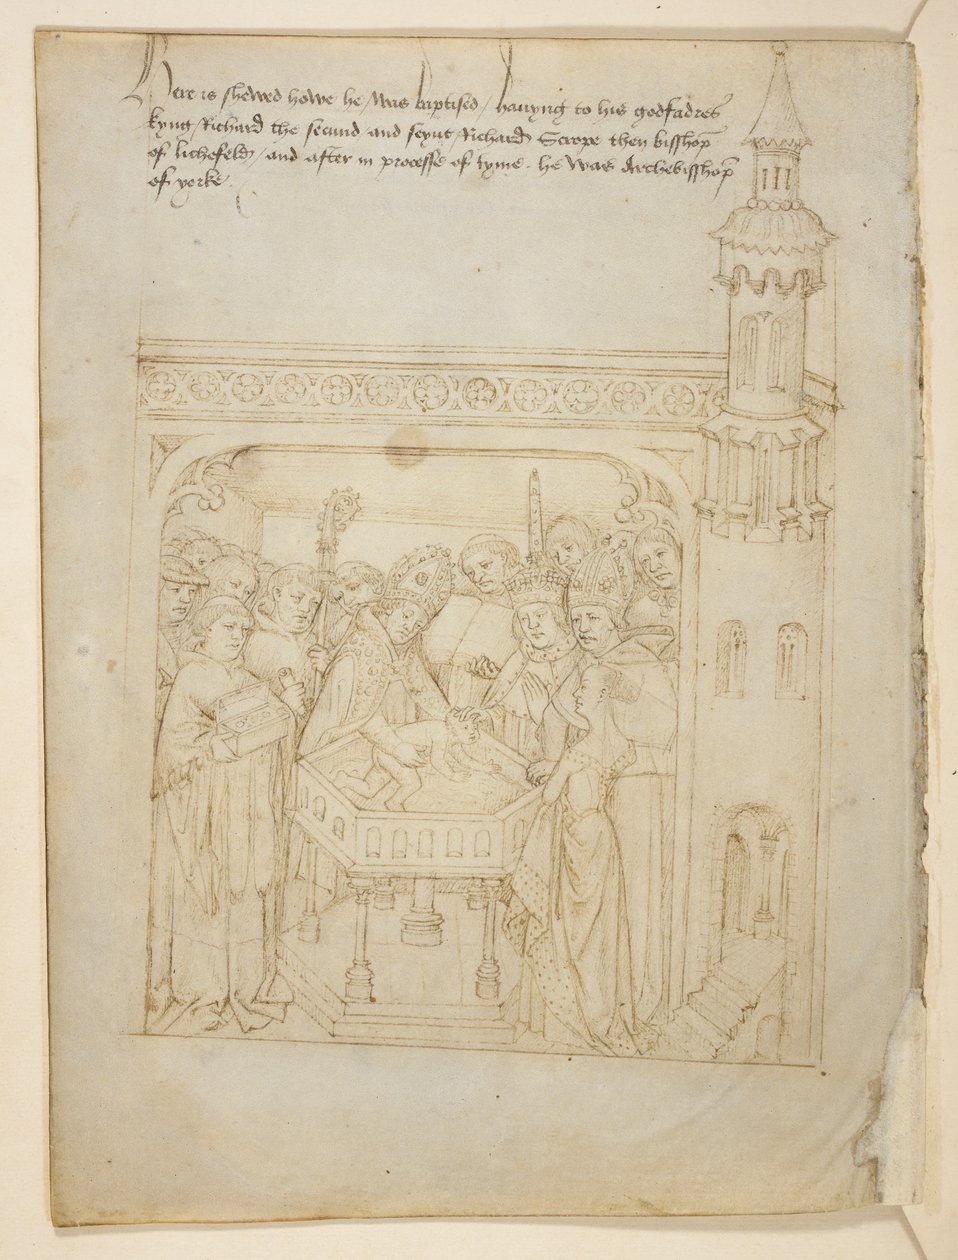 Here is shewed howe he was baptised / hauyng to his godfadres
kyng Richard the secund and seynt Richard Scrope then bisshop
of lichefeld / and after in processe of tyme . he was Archebisshop
of yorke .